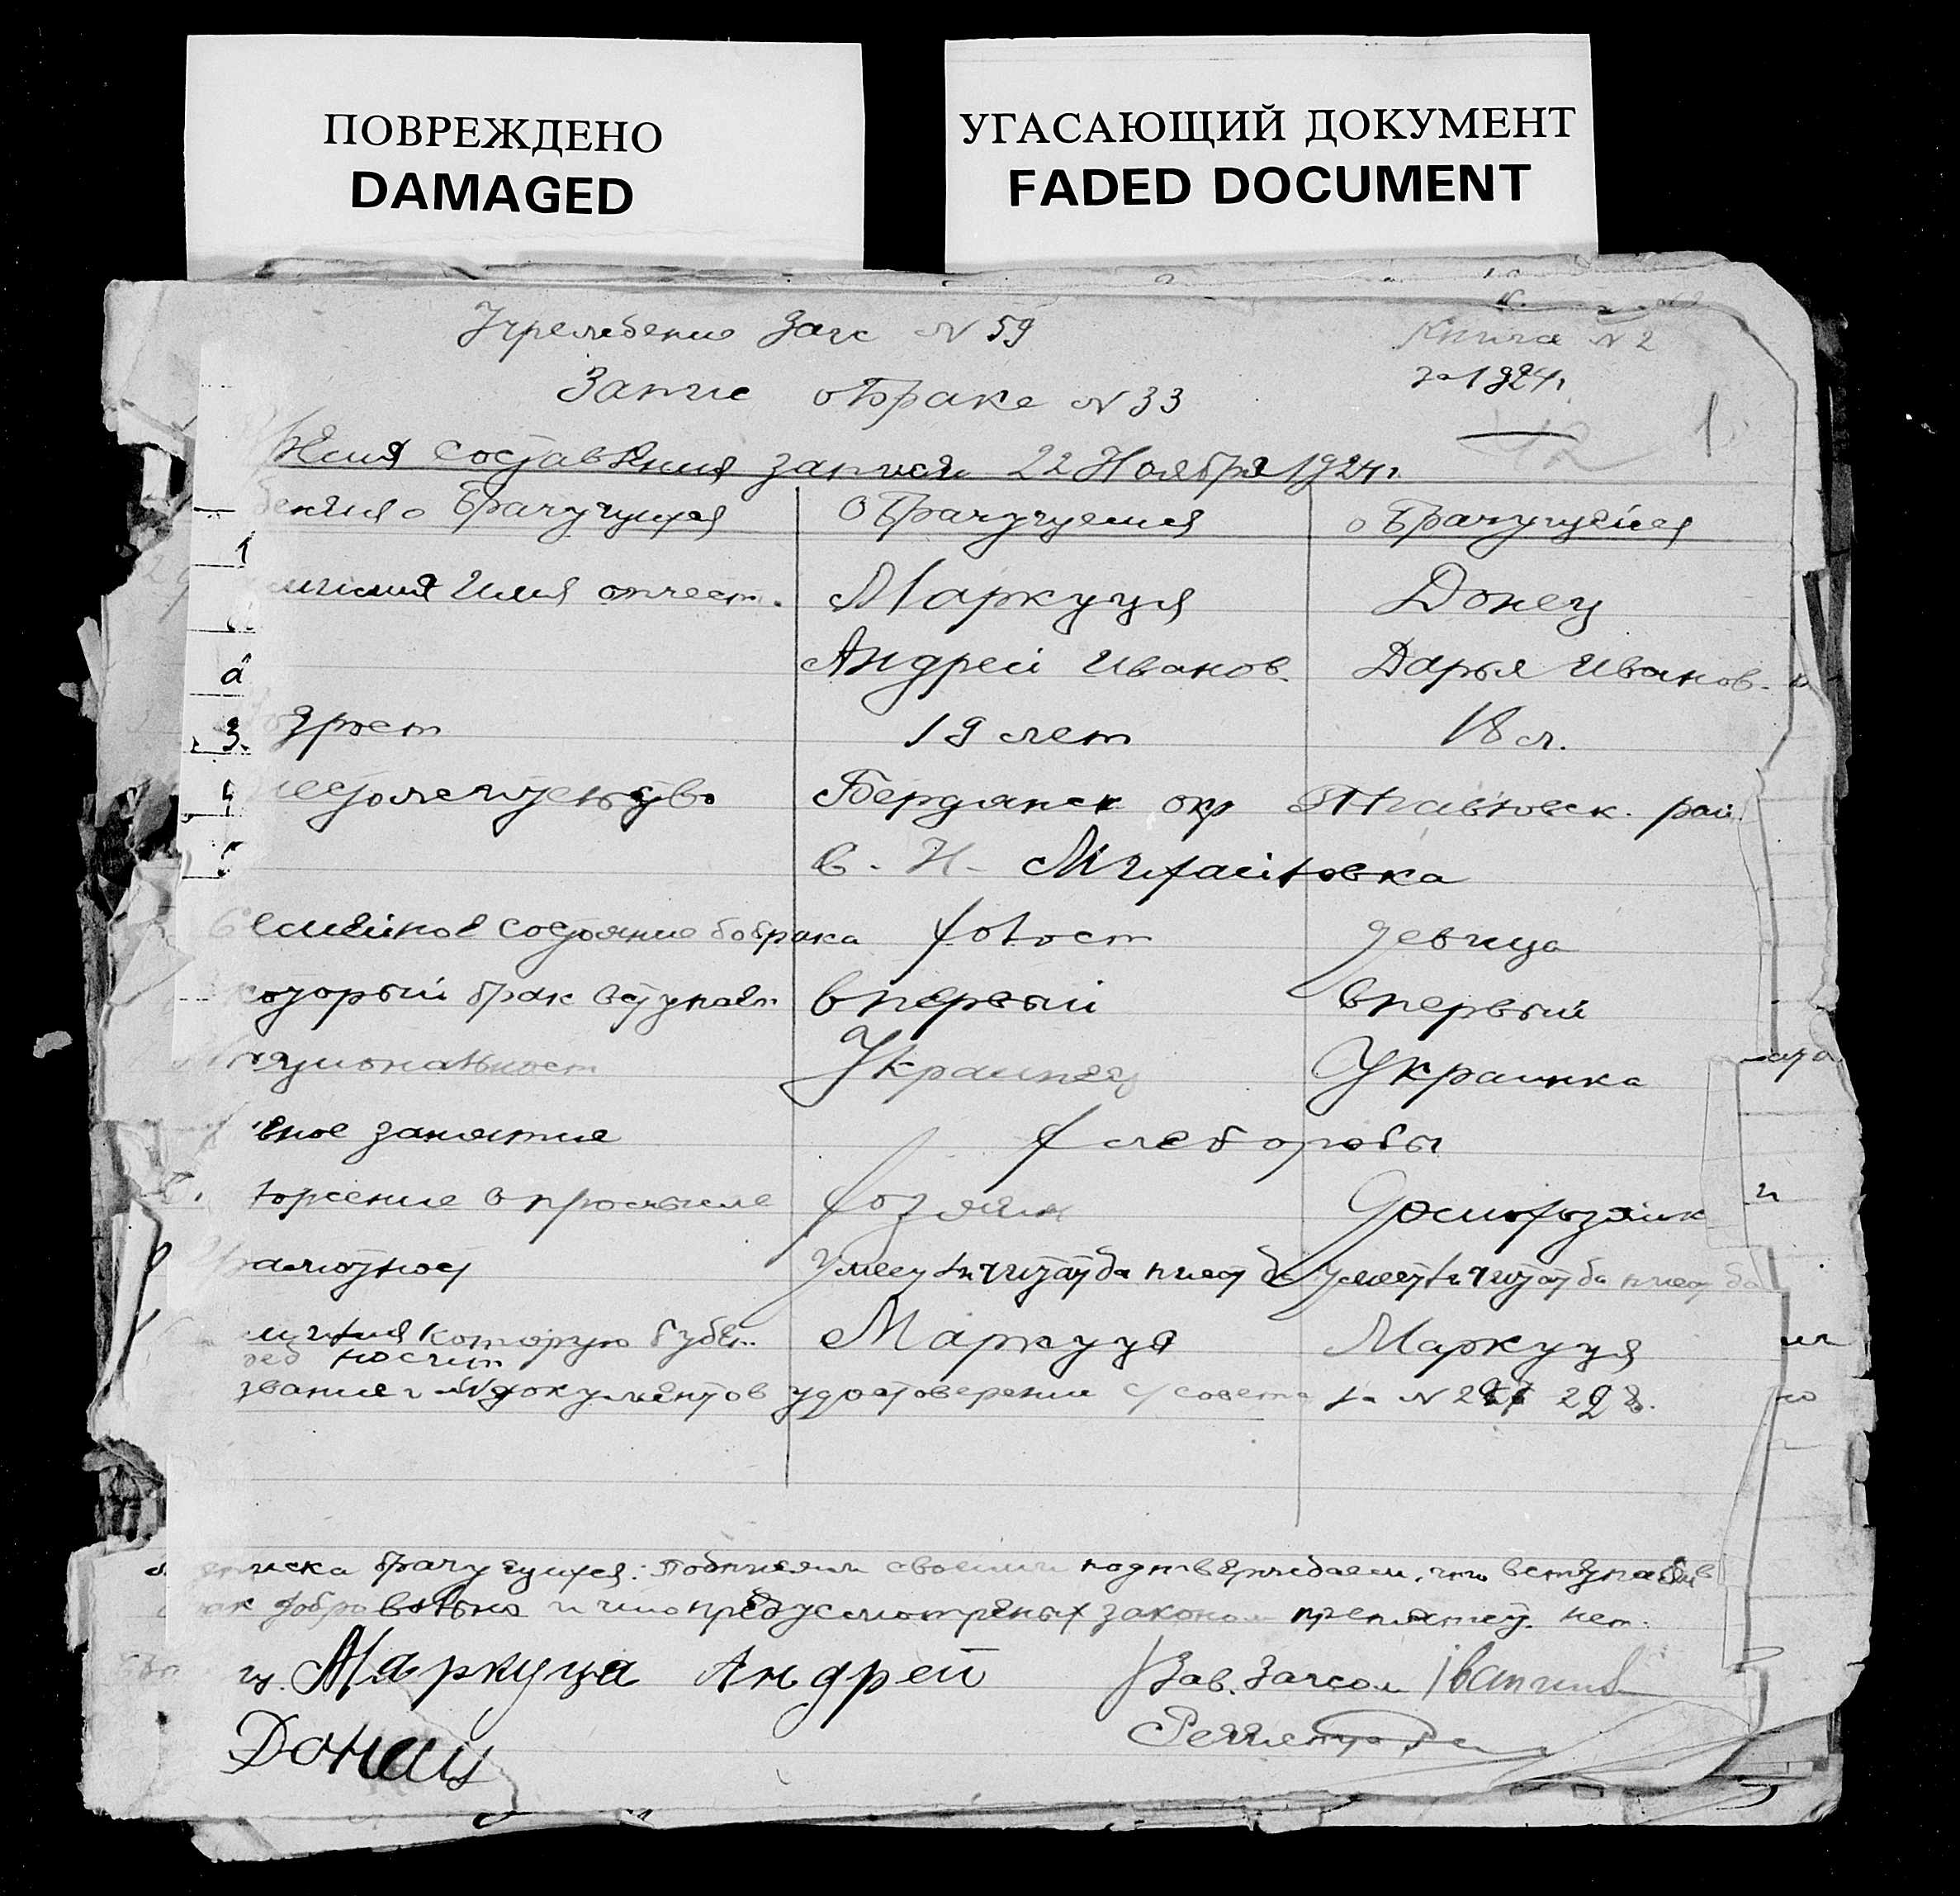 ПОВРЕЖДЕНО
DAMAGED
УГАСАЮЩИЙ ДОКУМЕНТ
FADED DOCUMENT
Учреждение Загс N 59
Книга N 2
за 1924г.
Запис о браке N 33
1
42
Время составления записи 22 Ноября 1924г.
дения о брачущихся
о брачущемся
о брачущейся
1
милия Имя отчест.
Маркуця
Донец
2
Андрей Иванов.
Дарья Иванов.
3.
озраст
19 лет
18 л.
4
местожительство
Бердянск окр
Павловск. рай.
с. Н.
Семейное состояние до брака
холост
девица
который брак вступает
впервый
впервый
национальност
Украинец
Украинка
вное занятие
хлеборобы
ложение в промысле
хозяин
домохозяйк
Грамотност
Умеет читат да писат
умеет читат да писат
милия которую будет
Маркуця
Маркуця
носит
звание и N документов
удостоверение с/совета за N 297 298.
писка брачущихся: Подписями своими подтверждаем, что вступаем в
рак добровольно и что предусмотреных законом препятств. нет.
Маркуца Андрей
Зав. Загсом
Донец